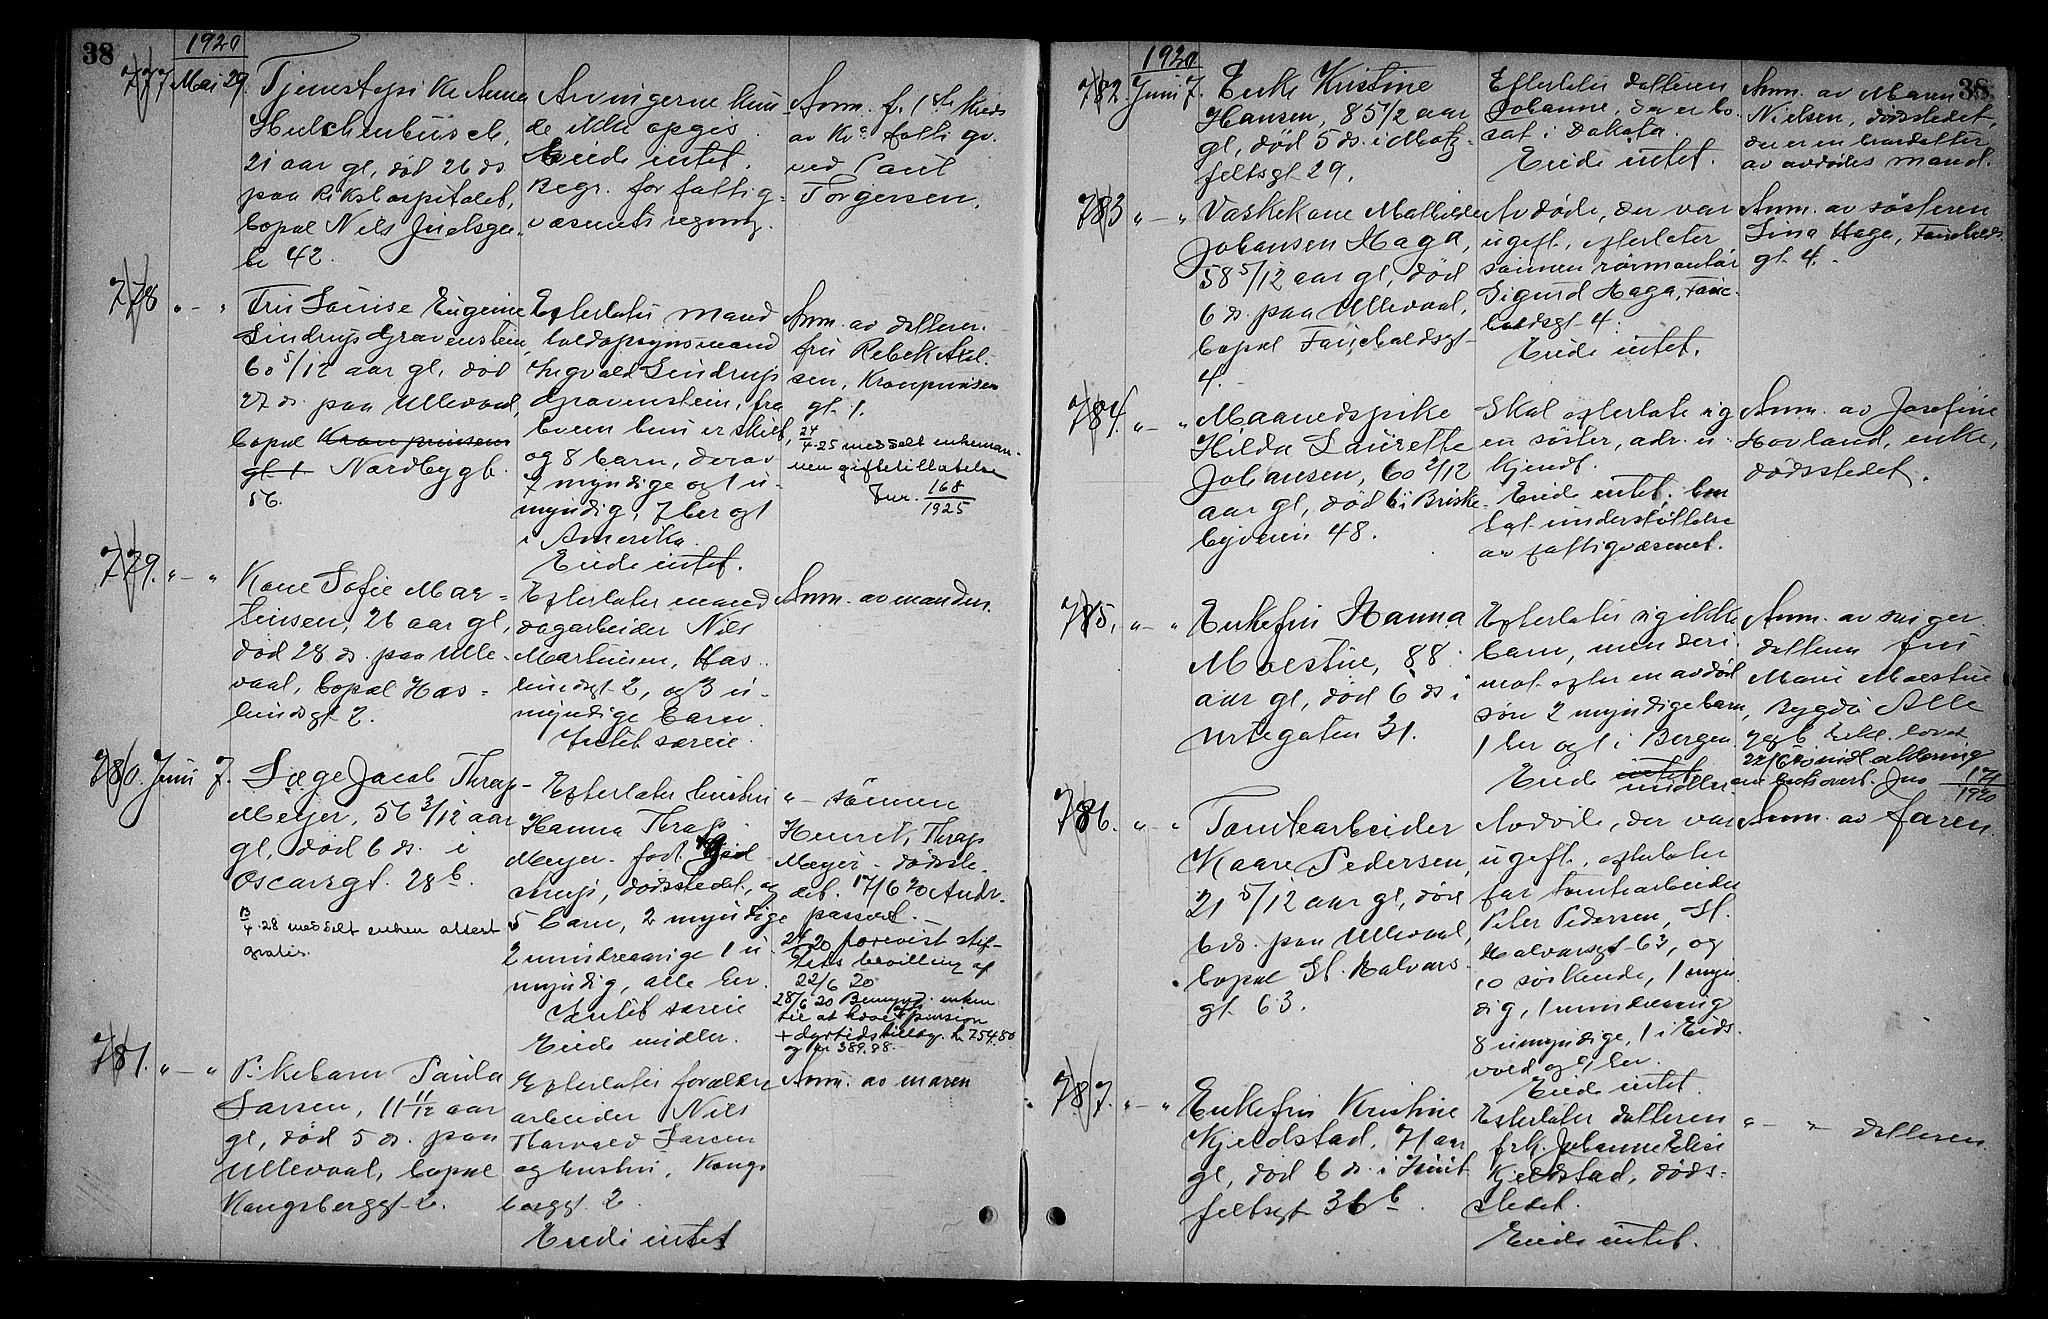 38
1920
777 Mai 29. Tjenestepike Anna
21 aar gl, død 26 ds
paa Rikshospitalet,
bopæl Nils Juelsga-
te 42.
Arvingerne kun-
de ikke opgis.
Eiede intet.
Begr. for fattig-
væsenets regning.
Anm. f. 1ste kreds
ved Paul
Torgersen.
778 " — " Fru Louise Eugenie
Lindrup Gravenstein,
60 5/12 aar gl, død
27 ds. paa Ullevaal,
bopæl Kronprinsens
gt 1 Nordbygt.
56.
Efterlater mand
toldopsynsmand
Ingvald Lindrup
Gravenstein, fra
hvem hun er skilt,
og 8 barn, derav
7 myndige og 1 u-
myndig, 7 her og 1
i Amerika.
Eiede intet.
Anm. av datteren
fru Rebek Axel-
sen, Kronprinsens
gt. 1.
24/4-25 meddelt enkeman-
nen giftetillatelse
Jnr. 168/1925
779. " — " Kone Sofie Mar-
tinsen, 26 aar gl,
død 28 ds. paa Ulle-
vaal, bopæl Has-
lundsgt 2.
Efterlater mand
dagarbeider Nils
Martinsen, Has-
lundsgt 2, og 3 u-
myndige barn.
Intet særeie.
Anm. av manden.
780. Juni 7. Læge Jacob Thrap-
Meyer, 56 3/12 aar
gl, død 6 ds. i
Oscarsgt. 28b.
13/4-28 meddelt enken attest
gratis.
Efterlater hustru
Hanna Thrap
Meyer, født
strup, dødsstedet, og
5 barn, 2 myndige
2 mindreaarige 1 u-
myndig, alle her.
Intet særeie
Eiede midler.
" — sønnen
Henrik Thrap
Meyer, dødste-
det. 17/6 20 Andr.
passert.
24/6 20 forevist skif-
tets bevilling af
22/6 20
28/6 20 Bemynd. enken
til at hæve pension
+ dyrtidstillæg. kr 754.50
og kr 389.98.
781. " — " Pikebarn Paula
Larsen, 11 11/12 aar
gl, død 5 ds. paa
Ullevaal, bopæl
Kongsberggt 2.
Efterlater forældre
arbeider Nils
Thorvald Larsen
og hustru, Kongs-
berggt. 2.
Eiede intet
Anm. av moren
38
1920
782 Juni 7. Enke Kristine
Hansen, 85 1/2 aar
gl, død 5 ds. i Motz-
feltsgt 29.
Efterlater datteren
Johanne, der er bo-
sat i Dakota.
Eiede intet.
Anm. av Maren
Nielsen, dødsstedet,
der er en brordatter
av avdødes mand.
783 " — " Vaskekone Mathilde
Johansen Haga,
58 5/12 aar gl, død
6 ds. paa Ullevaal,
bopæl Faucholdsgt
4.
Avdøde, der var
ugift, efterlater
sønnen rørmontør
Sigurd Haga, Fauc-
holdsgt 4.
Eiede intet.
Anm. av søsteren
Lina Hage, Faucholds
gt. 4.
784. " — " Maanedspike
Hilda Laurette
Johansen, 60 2/12
aar gl, død 6 i Briske-
byveien 48.
Skal efterlate sig
en søster, adr. u-
kjendt.
Eiede intet; hun
hat understøttelse
av fattigvæsenet.
Anm. av Josefine
Hovland, enke,
dødsstedet.
785. " — " Enkefru Hanna
Moestue, 88
aar gl, død 6 ds i
Urtegaten 31.
Efterlater sig ikke
barn, men deri-
mot efter en avdød
søn 2 myndige barn,
1 her og 1 i Bergen.
Eiede intet midler
Anm. av sviger-
datteren fru
Marie Moestue
Bygdø Alle
Jno 171/1920
786. " — " Tomtearbeider
Kaare Pedersen,
21 5/12 aar gl, død
6 ds. paa Ullevaal,
bopæl St. Halvards
gt 63.
Avdøde, der var
ugift, efterlater
far tomtearbeider
Peter Pedersen, St.
Halvardsgt 63, og
10 søskende, 1 myn-
dig, 1 mindreaarig
8 umyndige, 1 i Eids-
vold og 9 her.
Eiede intet.
Anm. av faren.
787. " — " Enkefru Kristine
Kjeldstad, 71 aar
gl, død 6 ds. i Huit-
feltsgt 36b.
Efterlater datteren
frk. Johanne Elise
Kjeldstad, døds-
stedet.
Eiede intet.
" — " datteren